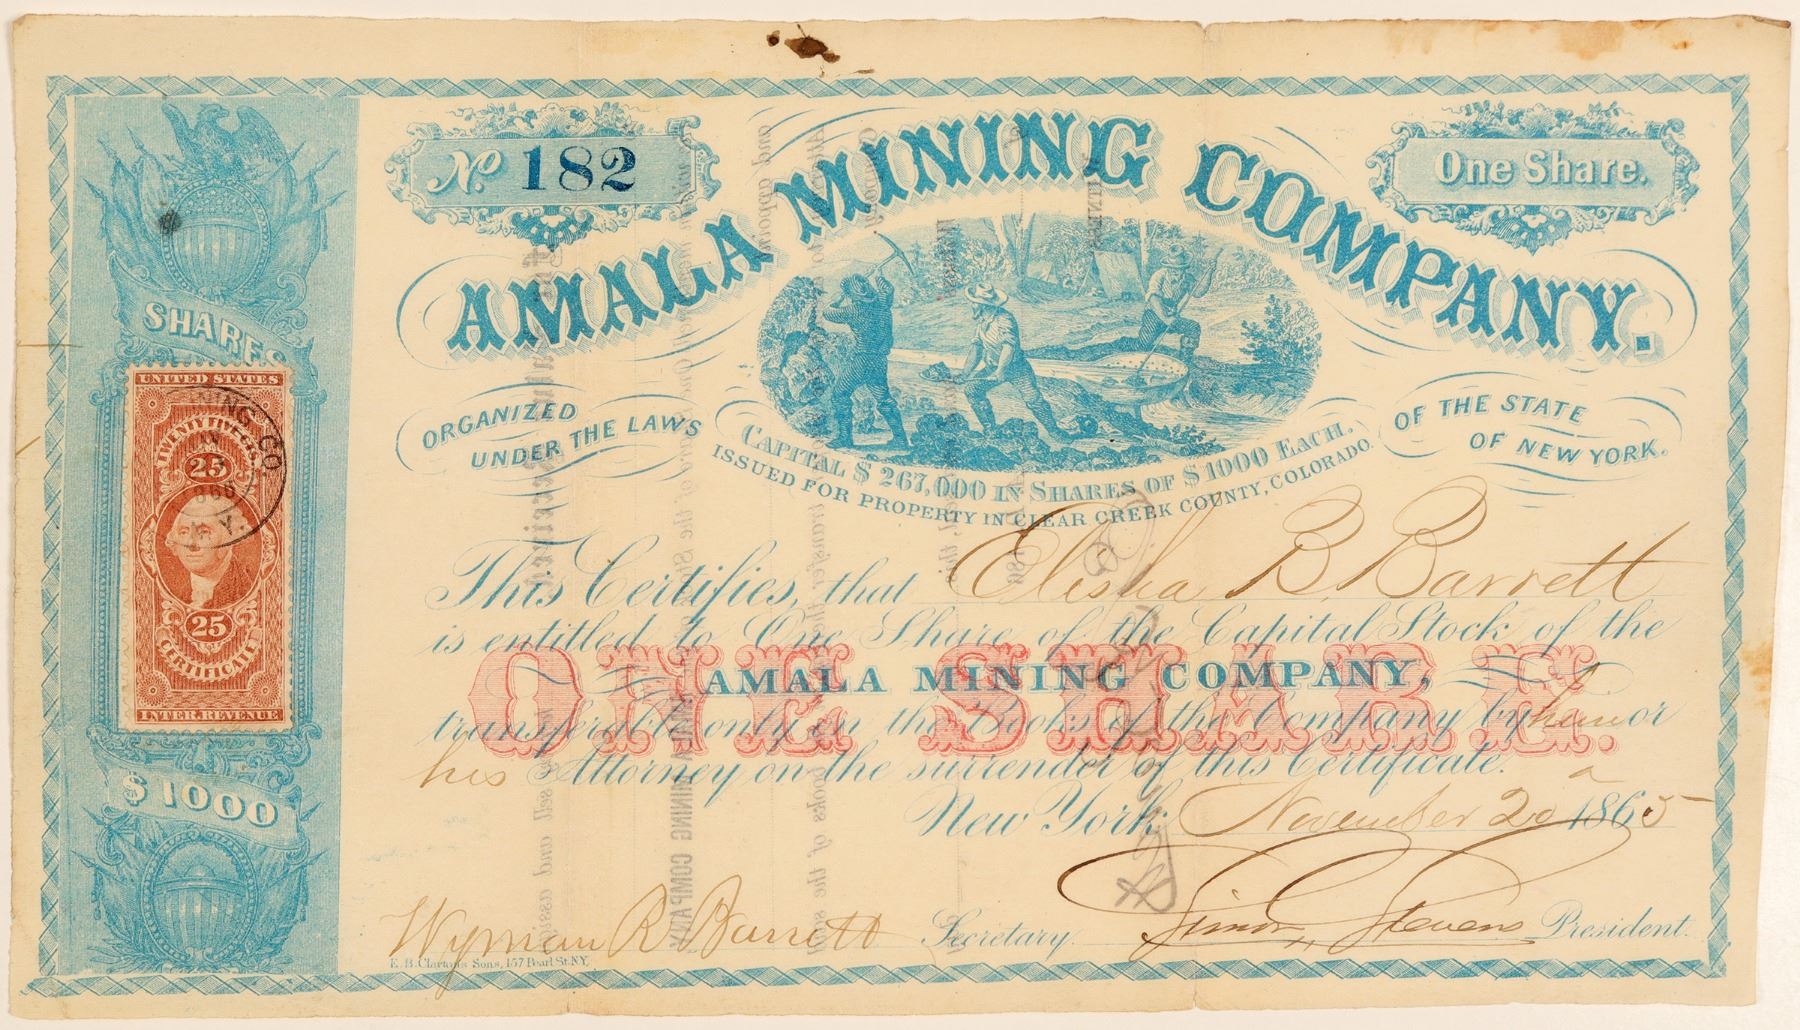 No. 182
One Share.
AMALA MINING COMPANY.
ORGANIZED
UNDER THE LAWS
OF THE STATE
OF NEW YORK.
CAPITAL $267,000 IN SHARES OF $1000 EACH.
ISSUED FOR PROPERTY IN CLEAR CREEK COUNTY, COLORADO.
SHARES
UNITED STATES
TWENTY FIVE CTS.
25
25
CERTIFICATE
INTER. REVENUE
NING CO
$1000
This Certifies, that Elisha B. Barrett
is entitled to One Share of the Capital Stock of the
AMALA MINING COMPANY,
ONE SHARE.
transferable only on the Books of the Company by him or
his Attorney on the surrender of this Certificate.
New York, November 20 1865
Wyman R. Barrett Secretary.
Simon Stevens President.
E. B. Clayton's Sons, 157 Pearl St. N.Y.